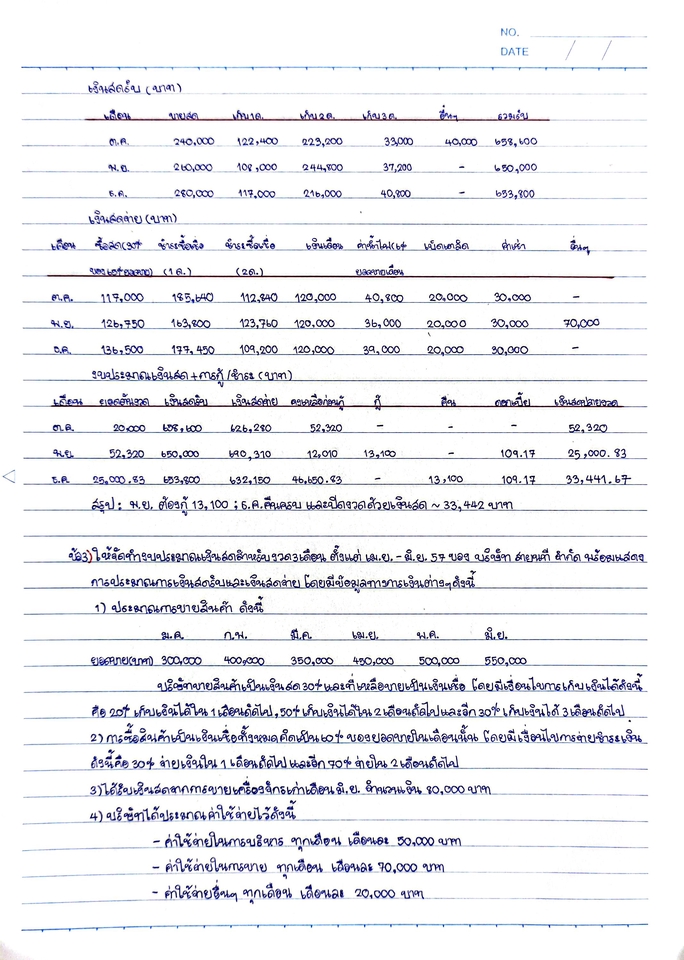 NO.
DATE / /
เงินสดรับ (บาท)
เดือน ขายสด เก็บ1ด. เก็บ2ด. เก็บ3ด. อื่นๆ รวมรับ
ต.ค. 240,000 122,400 223,200 33,000 40,000 658,600
พ.ย. 260,000 108,000 244,800 37,200 - 650,000
ธ.ค. 280,000 117,000 216,000 40,800 - 653,800
เงินสดจ่าย (บาท)
เดือน ซื้อสด(30% ชำระซื้อเชื่อ ชำระซื้อเชื่อ เงินเดือน ค่าน้ำไฟ(6% เบ็ดเตล็ด ค่าเช่า อื่นๆ
ของ65%ยอดขาย) (1ด.) (2ด.) ยอดขายเดือน
ต.ค. 117,000 185,640 112,840 120,000 40,800 20,000 30,000 -
พ.ย. 126,750 163,800 123,760 120,000 36,000 20,000 30,000 70,000
ธ.ค. 136,500 177,450 109,200 120,000 39,000 20,000 30,000 -
งบประมาณเงินสด+การกู้/ชำระ (บาท)
เดือน ยอดต้นงวด เงินสดรับ เงินสดจ่าย คงเหลือก่อนกู้ กู้ คืน ดอกเบี้ย เงินสดปลายงวด
ต.ค. 20,000 658,600 626,280 52,320 - - - 52,320
พ.ย. 52,320 650,000 690,310 12,010 13,100 109.17 25,000.83
ธ.ค. 25,000.83 653,800 632,150 46,650.83 - 13,100 109.17 33,441.67
สรุป: พ.ย. ต้องกู้ 13,100 ; ธ.ค.คืนครบ และปิดงวดด้วยเงินสด ~ 33,442 บาท
ข้อ3) ให้จัดทำงบประมาณเงินสดสำหรับงวด3เดือน ตั้งแต่ เม.ย. - มิ.ย. 57 ของ บริษัท สายนที จำกัด พร้อมแสดง
การประมาณการเงินสดรับและเงินสดจ่าย โดยมีข้อมูลทางการเงินต่างๆดังนี้
1) ประมาณการขายสินค้า ดังนี้
ม.ค. ก.พ. มี.ค. เม.ย. พ.ค. มิ.ย.
ยอดขาย(บาท) 300,000 400,000 350,000 450,000 500,000 550,000
บริษัทขายสินค้าเป็นเงินสด 30% และที่เหลือขายเป็นเงินเชื่อ โดยมีเงื่อนไขการเก็บเงินได้ดังนี้
คือ 20% เก็บเงินได้ใน 1 เดือนถัดไป , 50% เก็บเงินได้ใน 2 เดือนถัดไปและอีก 30% เก็บเงินได้ 3 เดือนถัดไป
2) การซื้อสินค้าเป็นเงินเชื่อทั้งหมดคิดเป็น 60% ของยอดขายในเดือนนั้น โดยมีเงื่อนไขการจ่ายชำระเงิน
ดังนี้คือ 30% จ่ายเงินใน 1 เดือนถัดไป และอีก 70% จ่ายใน 2 เดือนถัดไป
3) ได้รับเงินสดจากการขายเครื่องจักรเก่าเดือน มิ.ย. จำนวนเงิน 80,000 บาท
4) บริษัทได้ประมาณค่าใช้จ่ายไว้ดังนี้
- ค่าใช้จ่ายในการบริหาร ทุกเดือน เดือนละ 50,000 บาท
- ค่าใช้จ่ายในการขาย ทุกเดือน เดือนละ 70,000 บาท
- ค่าใช้จ่ายอื่นๆ ทุกเดือน เดือนละ 20,000 บาท